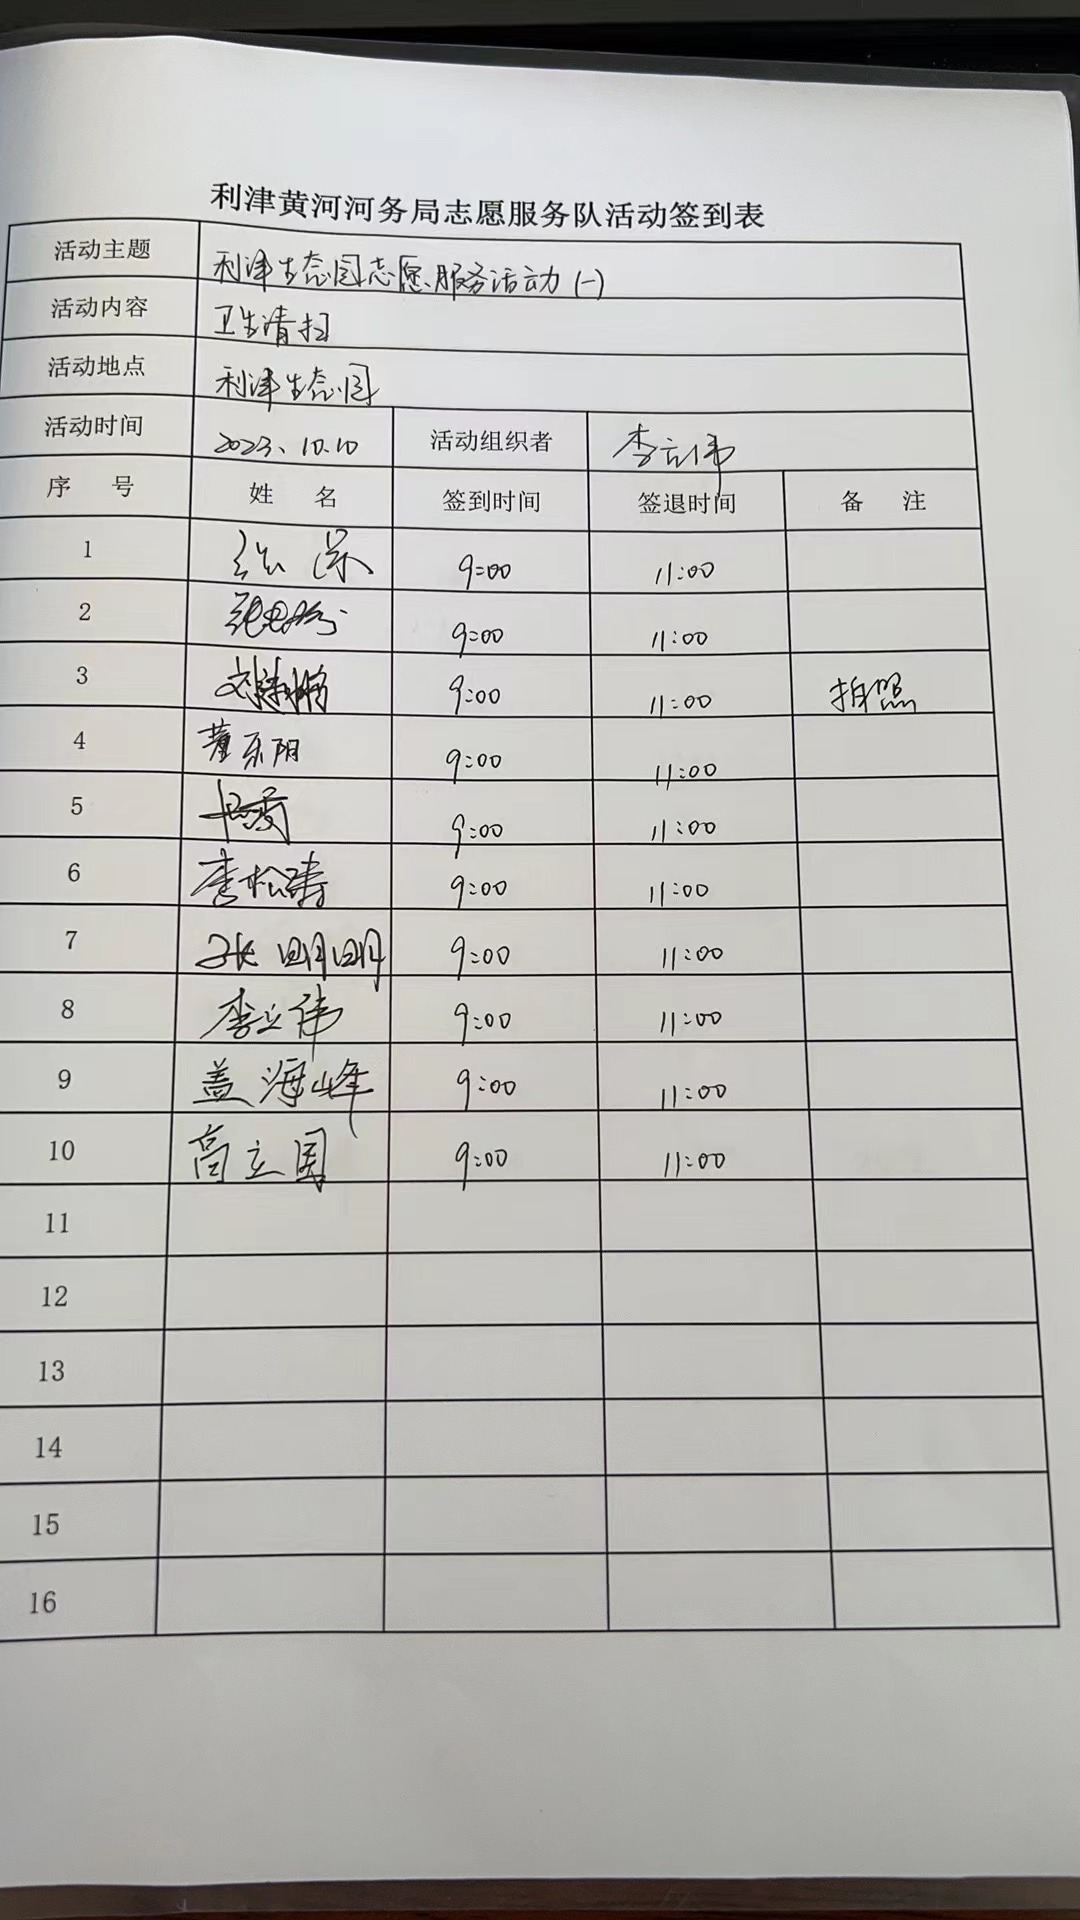 利津黄河河务局志愿服务队活动签到表
活动主题 利津生态园志愿服务活动(一)
活动内容 卫生清扫
活动地点 利津生态园
活动时间 2023.10.10 活动组织者 李立伟
序 号 姓 名 签到时间 签退时间 备 注
1 9:00 11:00
2 9:00 11:00
3 9:00 11:00 拍照
4 董乐阳 9:00 11:00
5 9:00 11:00
6 李松涛 9:00 11:00
7 张明明 9:00 11:00
8 李立伟 9:00 11:00
9 盖海峰 9:00 11:00
10 高立国 9:00 11:00
11
12
13
14
15
16